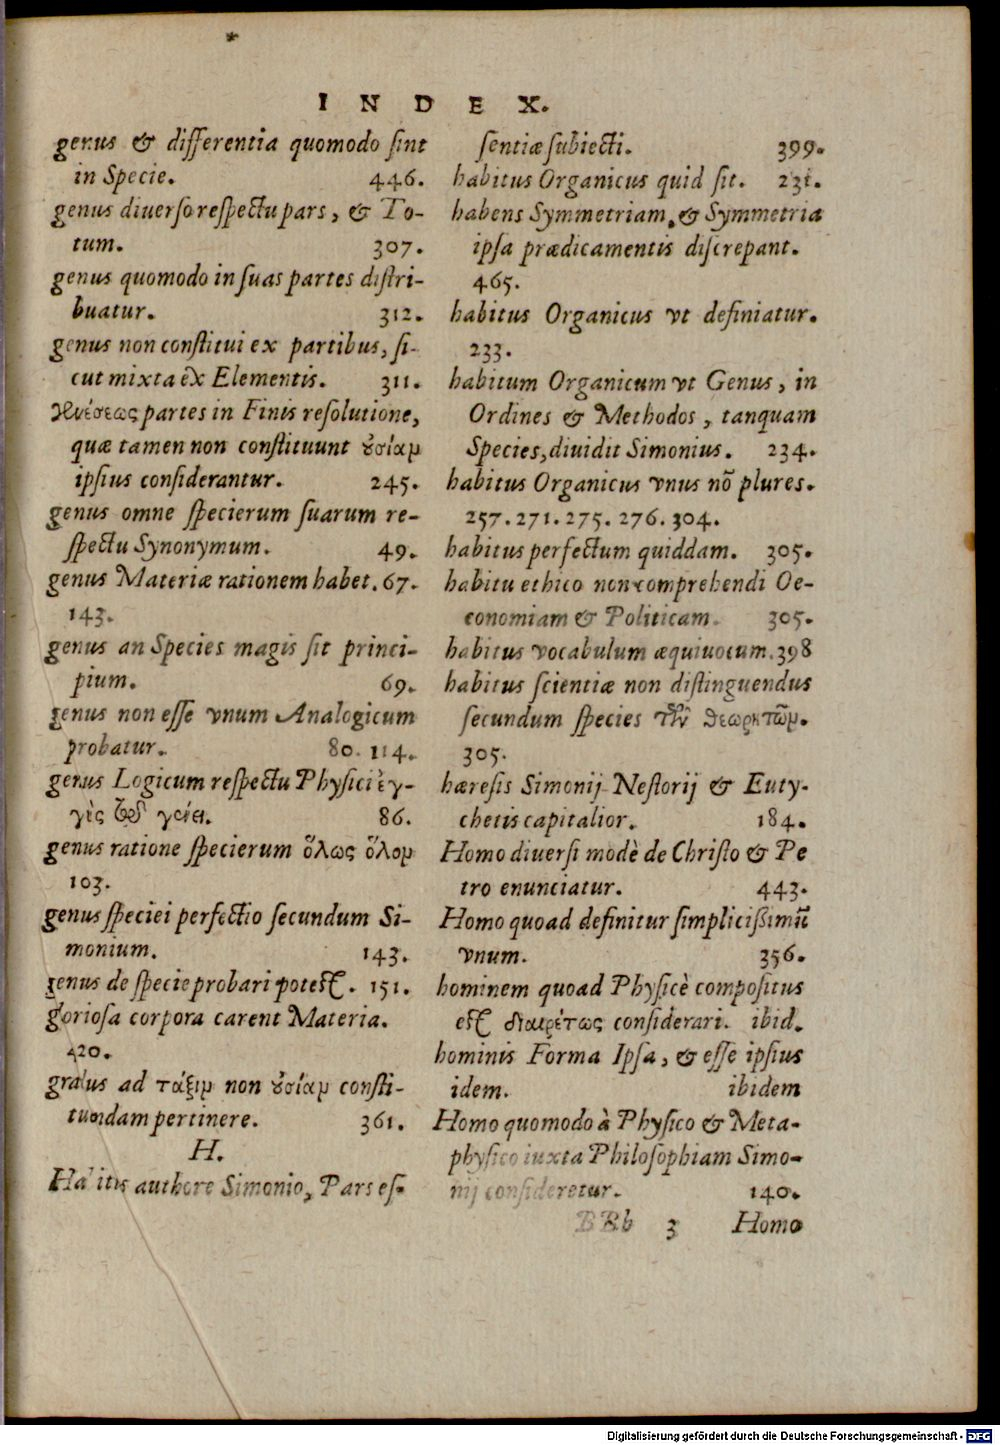 INDEX.
genus & differentia quomodo ſint
in Specie. 446.
genus diuerſo reſpectu pars, & To-
tum. 307.
genus quomodo in ſuas partes diſtri-
buatur. 312.
genus non conſtitui ex partibus, ſi-
cut mixta ex Elementis. 311.
γενέσεως partes in Finis reſolutione,
quæ tamen non conſtituunt ȣσίαμ
ipſius conſiderantur. 245.
genus omne ſpecierum ſuarum re-
ſpectu Synonymum. 49.
genus Materiæ rationem habet. 67.
143.
genus an Species magis ſit princi-
pium. 69.
genus non eſſe vnum Analogicum
probatur. 80. 114.
genus Logicum reſpectu Phyſici ἐγ-
γὺς 86.
genus ratione ſpecierum ὅλως ὅλομ
103.
genus ſpeciei perfectio ſecundum Si-
monium. 143.
genus de ſpecie probari poteſt. 151.
glorioſa corpora carent Materia.
420.
gradus ad τάξιμ non ȣσίαμ conſti-
tuendam pertinere. 361.
H.
Habitus authore Simonio, Pars eſ-
ſentiæ ſubiecti. 399.
habitus Organicus quid ſit. 231.
habens Symmetriam, & Symmetria
ipſa prædicamentis diſcrepant.
465.
habitus Organicus vt definiatur.
233.
habitum Organicum vt Genus, in
Ordines & Methodos, tanquam
Species, diuidit Simonius. 234.
habitus Organicus vnus nõ plures.
257. 271. 275. 276. 304.
habitus perfectum quiddam. 305.
habitu ethico non comprehendi Oe-
conomiam & Politicam. 305.
habitus vocabulum æquiuocum. 398
habitus ſcientiæ non diſtinguendus
ſecundum ſpecies τῶν θεωρητῶμ.
305.
hæreſis Simonij Neſtorij & Euty-
chetis capitalior. 184.
Homo diuerſi modè de Chriſto & Pe
tro enunciatur. 443.
Homo quoad definitur ſimpliciſsimũ
vnum. 356.
hominem quoad Phyſicè compoſitus
eſt διαιρέτως conſiderari. ibid.
hominis Forma Ipſa, & eſſe ipſius
idem. ibidem
Homo quomodo à Phyſico & Meta-
phyſico iuxta Philoſophiam Simo-
nij conſideretur. 140.
BBb 3 Homo
Digitalisierung gefördert durch die Deutsche Forschungsgemeinschaft - DFG